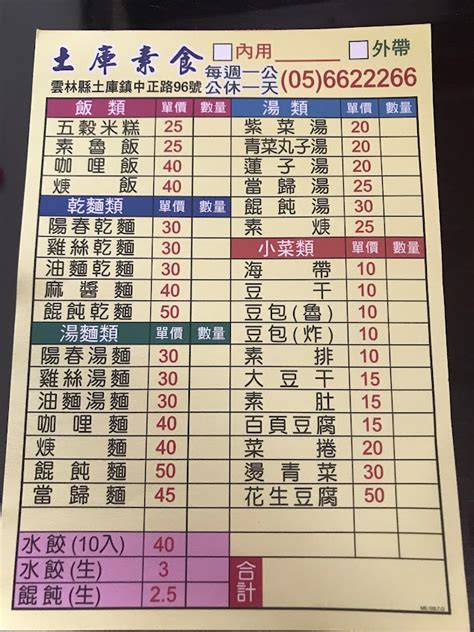 土庫素食 內用 外帶
雲林縣土庫鎮中正路96號 每週一公公休一天 (05)6622266
飯類 單價 數量
五穀米糕 25
素魯飯 25
咖哩飯 40
焿飯 40
乾麵類 單價 數量
陽春乾麵 30
雞絲乾麵 30
油麵乾麵 30
麻醬麵 40
餛飩乾麵 50
湯麵類 單價 數量
陽春湯麵 30
雞絲湯麵 30
油麵湯麵 30
咖哩麵 40
焿麵 40
餛飩麵 50
當歸麵 45
水餃(10入) 40
水餃(生) 3
餛飩(生) 2.5
湯類 單價 數量
紫菜湯 20
青菜丸子湯 20
蓮子湯 20
當歸湯 25
餛飩湯 30
素焿 25
小菜類 單價 數量
海帶 10
豆干 10
豆包(魯) 10
豆包(炸) 10
素排 10
大豆干 15
素肚 15
百頁豆腐 20
菜捲 20
燙青菜 30
花生豆腐 50
合計